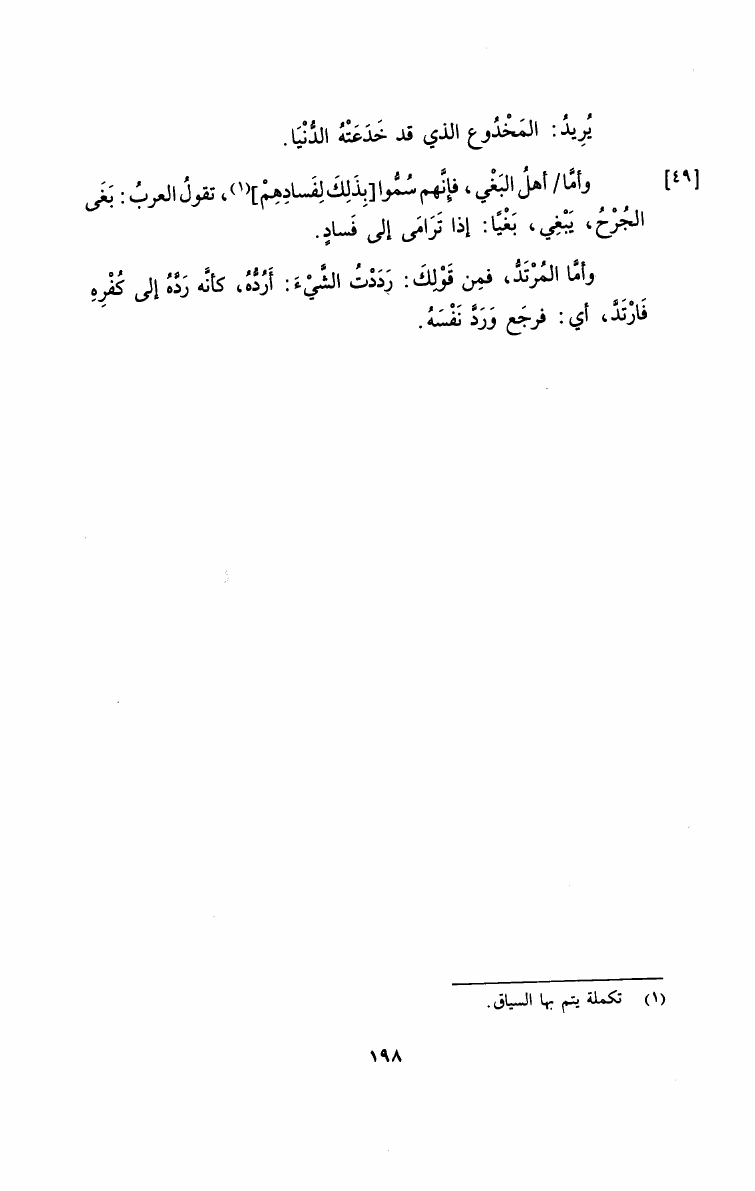 يُرِيدُ: المَخْدُوع الذي قد خَدَعَتْهُ الدُّنْيَا.
[٤٩] وأمَّا/ أهلُ البَغْي، فإِنَّهم سُمُّوا [بِذَلِكَ لِفَسادِهِمْ](١)، تقولُ العربُ: بَغَى
الجُرْحُ، يَبْغِي، بَغْيًا: إذا تَرَامَى إلى فَسادٍ.
وأمَّا المُرْتَدُّ، فمِن قَوْلِكَ: رَدَدْتُ الشَّيْءَ: أَرُدُّهُ، كأنَّه رَدَّهُ إلى كُفْرِهِ
فَارْتَدَّ، أي: فرجَع وَرَدَّ نَفْسَهُ.
(١) تكملة يتم بها السياق.
١٩٨